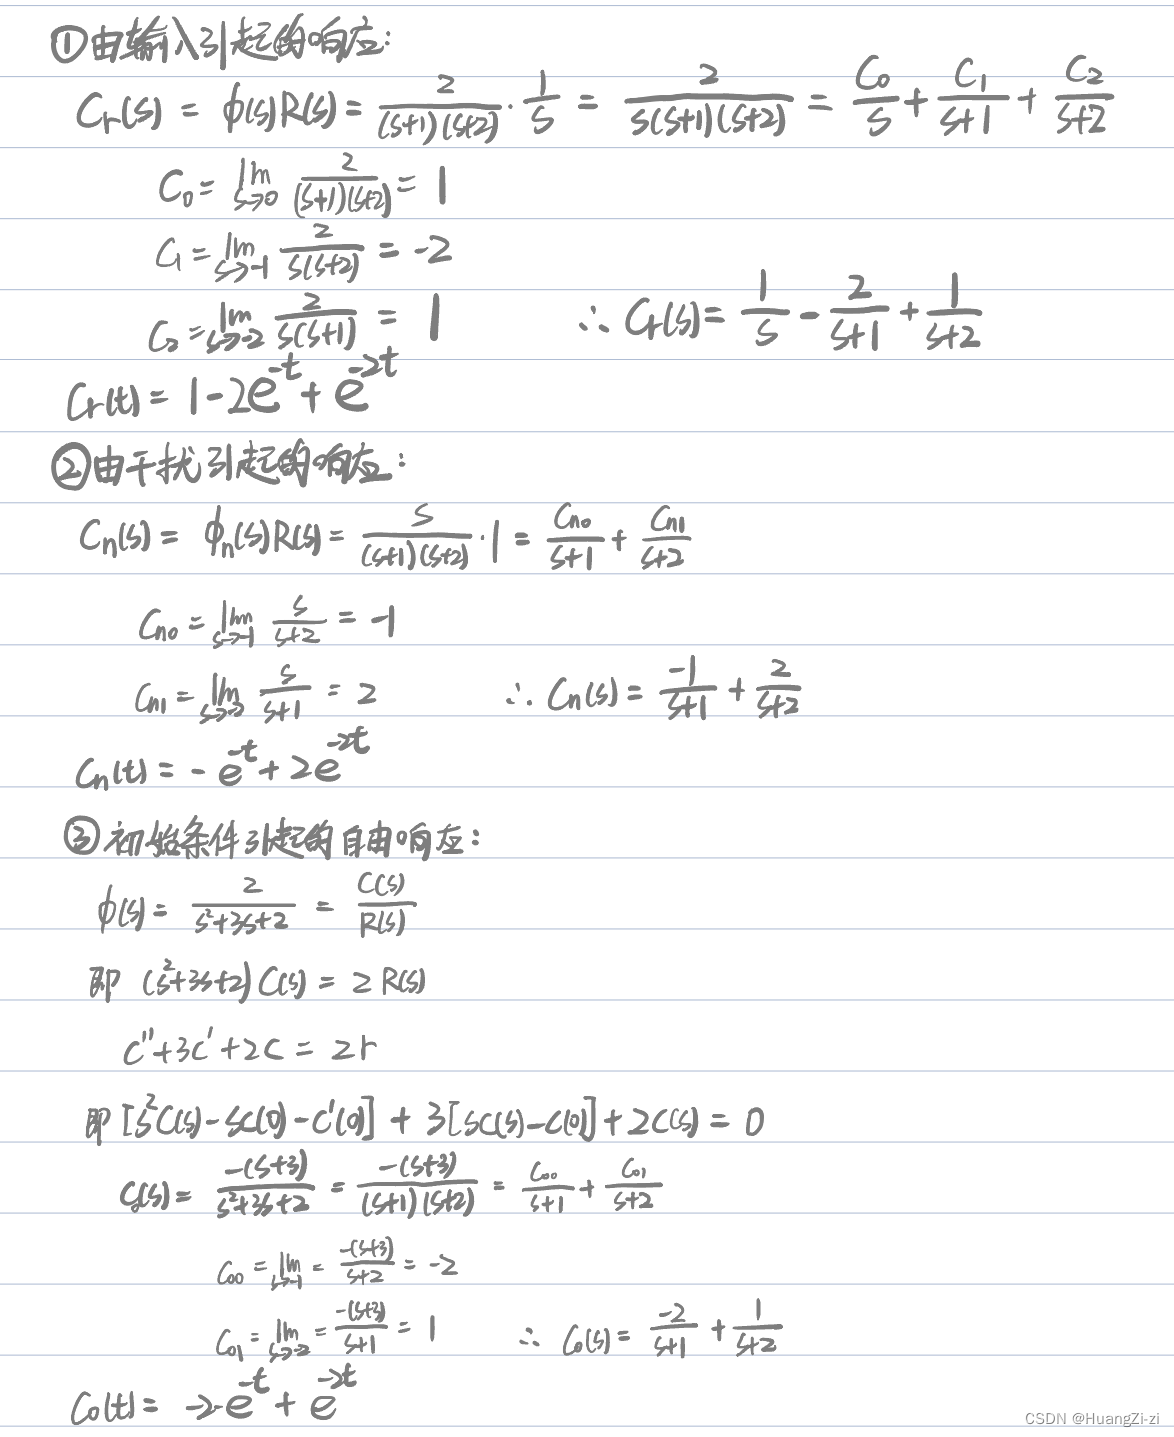 ①由输入引起的响应:
Cr(s) = ϕ(s)R(s) = 2/((s+1)(s+2)) · 1/s = 2/(s(s+1)(s+2)) = C₀/s + C₁/(s+1) + C₂/(s+2)
C₀ = lim s→0 2/((s+1)(s+2)) = 1
C₁ = lim s→-1 2/(s(s+2)) = -2
C₂ = lim s→-2 2/(s(s+1)) = 1 ∴ Cr(s) = 1/s - 2/(s+1) + 1/(s+2)
Cr(t) = 1 - 2e^{-t} + e^{-2t}
②由干扰引起的响应:
Cn(s) = ϕn(s)R(s) = s/((s+1)(s+2)) · 1 = Cn₀/(s+1) + Cn₁/(s+2)
Cn₀ = lim s→-1 s/(s+2) = -1
Cn₁ = lim s→-2 s/(s+1) = 2 ∴ Cn(s) = -1/(s+1) + 2/(s+2)
Cn(t) = -e^{-t} + 2e^{-2t}
③初始条件引起的自由响应:
ϕ(s) = 2/(s²+3s+2) = C(s)/R(s)
即 (s²+3s+2)C(s) = 2R(s)
C''+3C'+2C = 2r
即 [s²C(s)-sC(0)-C'(0)] + 3[sC(s)-C(0)] + 2C(s) = 0
C₀(s) = -(s+3)/(s²+3s+2) = -(s+3)/((s+1)(s+2)) = C₀₀/(s+1) + C₀₁/(s+2)
C₀₀ = lim s→-1 = -(s+3)/(s+2) = -2
C₀₁ = lim s→-2 = -(s+3)/(s+1) = 1 ∴ C₀(s) = -2/(s+1) + 1/(s+2)
C₀(t) = -2e^{-t} + e^{-2t}
CSDN @HuangZi-zi